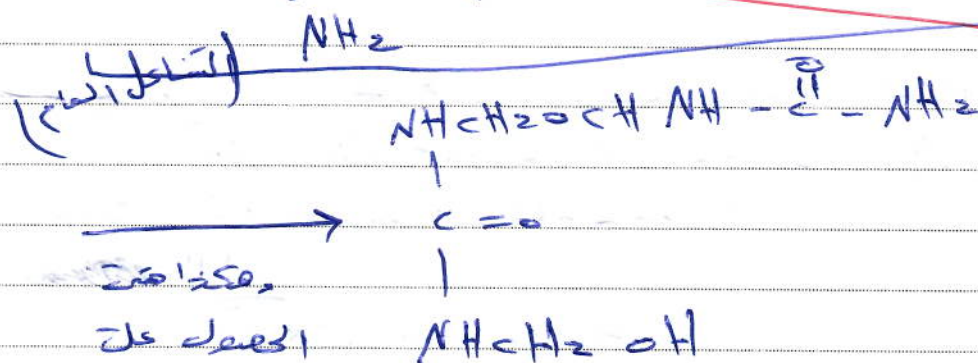 NH2
(التفاعل العام)
NHCH2OCH NH - C - NH2
O
||
|
C = O
|
وهكذا حتى
الحصول على
NHCH2OH